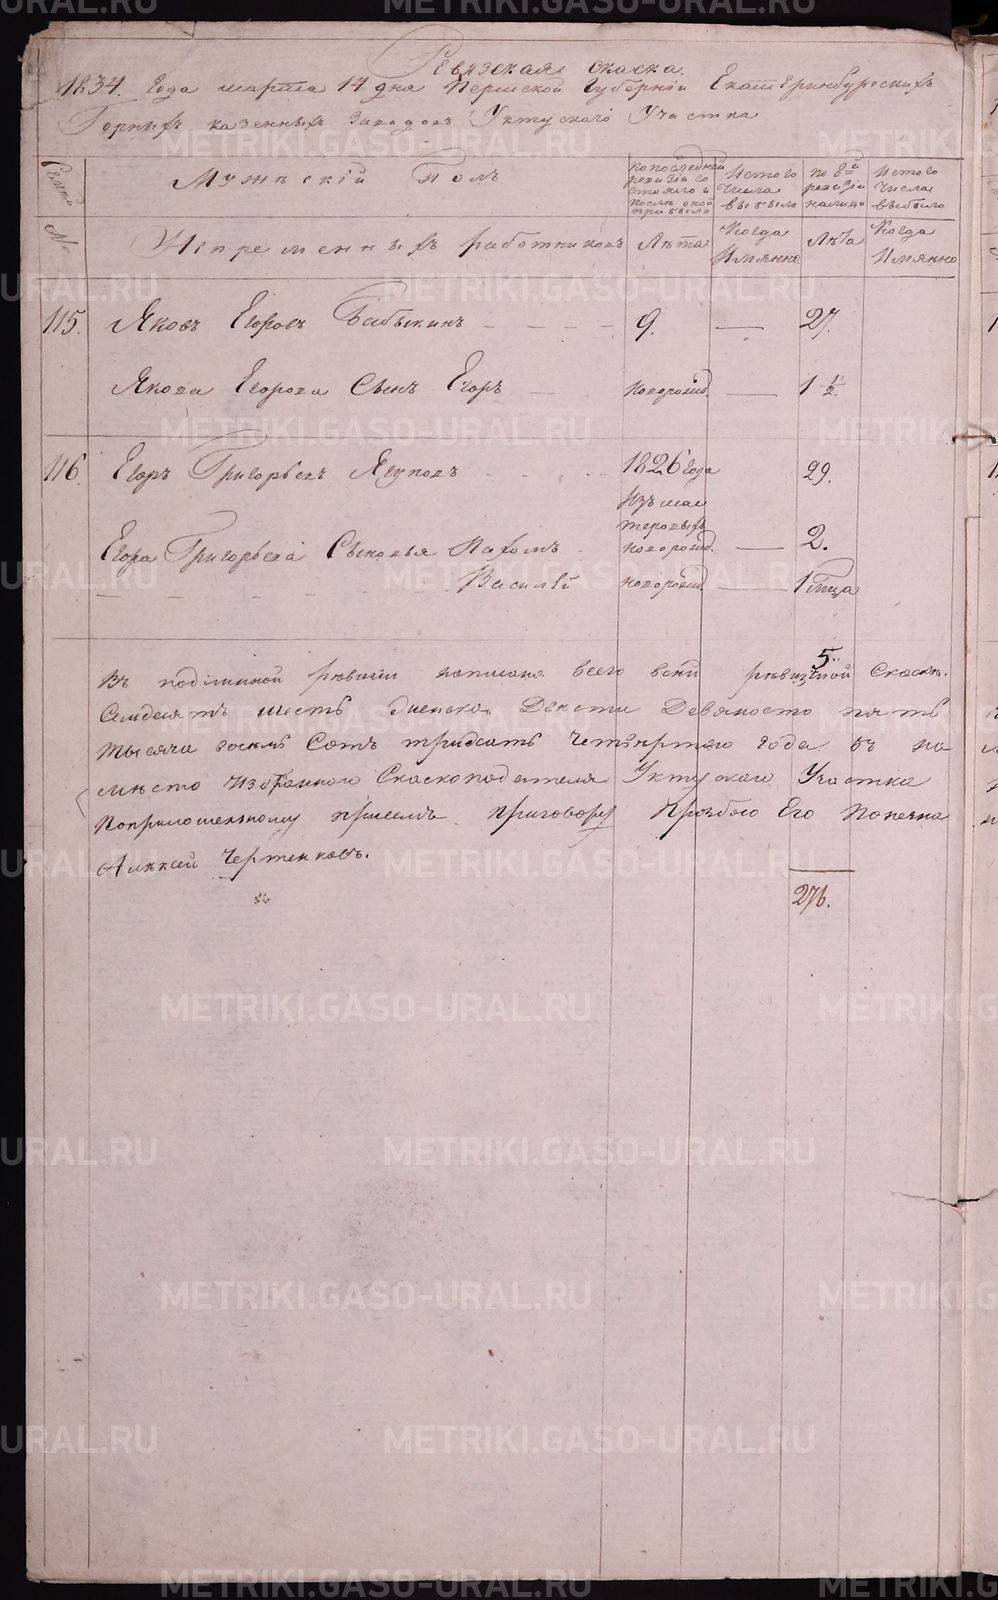 Ревизская скаска.
1834. Года марта 14 дня Пермской Губерніи Екатеринбурскихъ
Горныхъ казенныхъ заводовъ Уктускаго Участка
№
Мужескій Полъ
по последней ревизіи состояло и после оной прибыло
Истого числа выбыло
по 8й ревизіи налицо
Истого числа выбыло
Непременныхъ работниковъ
Лѣта
Когда Имянно
Лѣта
Когда Имянно
115. Яковъ Егоровъ Бабыкинъ 9. 27.
Якова Егорова Сынъ Егоръ новорожд. 1 ½
116. Егоръ Григорьевъ Ягуповъ 1826 года 29.
Изъ мастеровыхъ
Егора Григорьева Сыновья Пафомъ новорожд. 2.
Василій новорожд. 1 мца
5.
Въ подлинной ревизіи написано всего ревизской Скаски.
Семдесятъ шесть человекъ Двести Девяносто пять
тысяча восемь Сотъ тридсать четвертаго года въ
место Избраннаго Сказкоподателя Уктускаго Участка
поприложенному присемъ приговору прозбою Его
Алексей Чертенковъ.
276.
METRIKI.GASO-URAL.RU